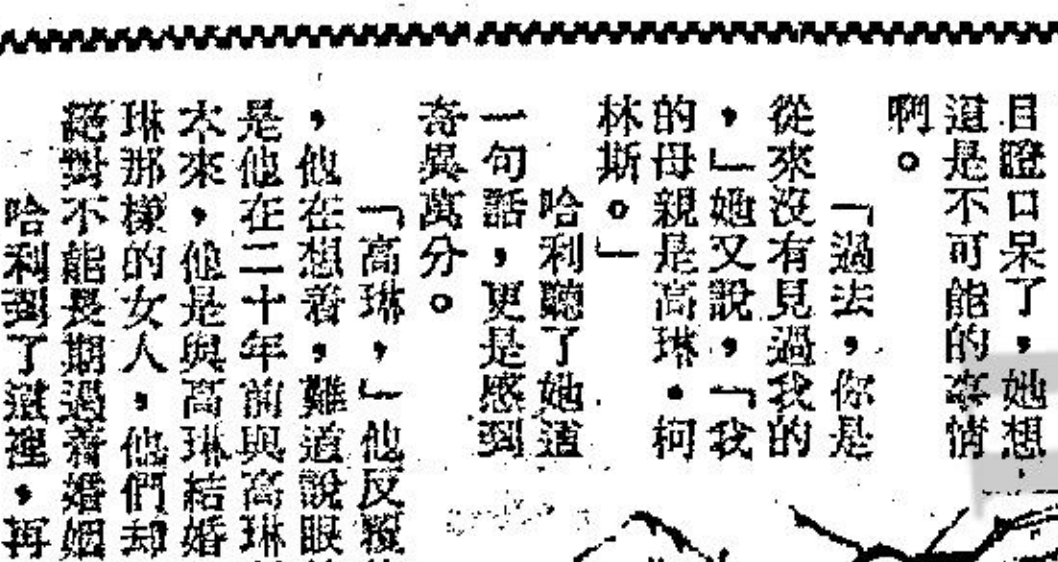 目瞪口呆了，她想，
這是不可能的事情
啊。
「過去，你是
從來沒有見過我的
，」她又說，「我
的母親是高琳・柯
林斯。」
哈利聽了她這
一句話，更是感到
奇異萬分。
「高琳，」他反覆
，他在想着，難道說眼
是他在二十年前與高琳
本來，他是與高琳結婚
琳那樣的女人，他們却
絕對不能長期過着婚姻
哈利到了這裡，再